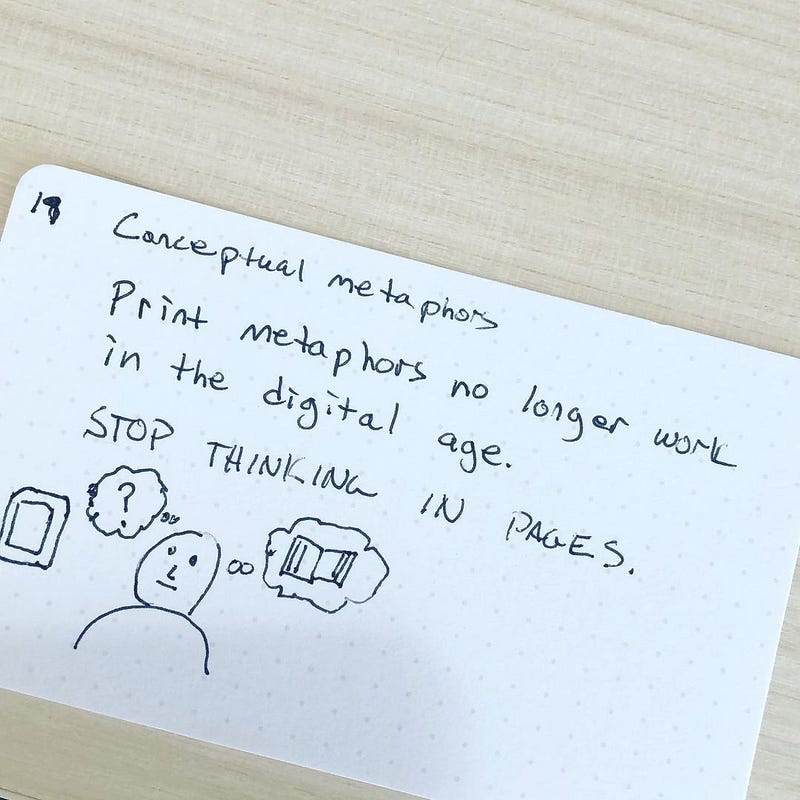 Conceptual metaphors
Print metaphors no longer work
in the digital age.
STOP THINKING IN PAGES.
?